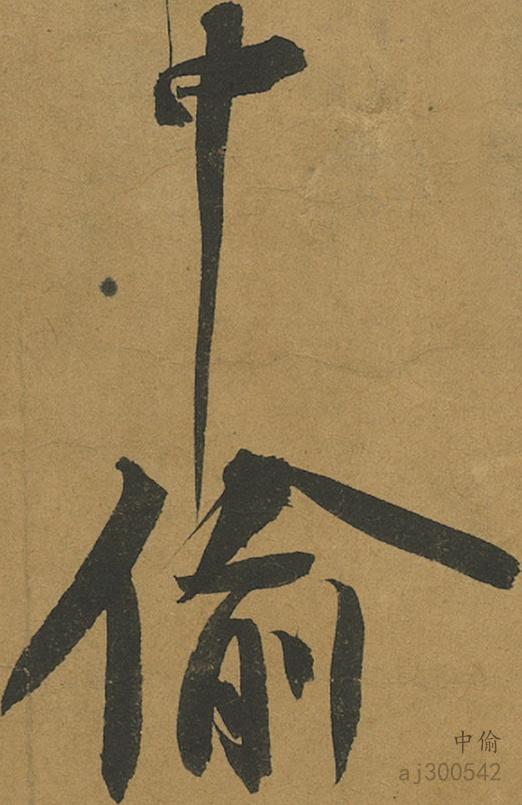 中偷
中偷
aj300542